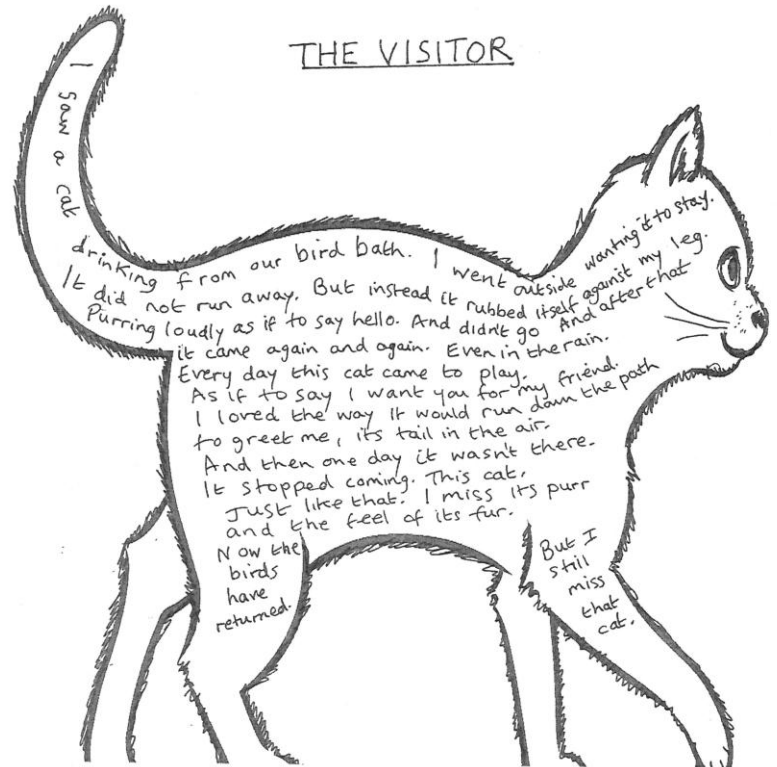 THE VISITOR
I saw a cat drinking from our bird bath. I went outside wanting it to stay.
It did not run away. But instead it rubbed itself against my leg.
Purring loudly as if to say hello. And didn't go And after that
it came again and again. Even in the rain.
Every day this cat came to play.
As if to say I want you for my friend.
I loved the way it would run down the path
to greet me, its tail in the air.
And then one day it wasn't there.
It stopped coming. This cat.
Just like that. I miss its purr
and the feel of its fur.
Now the
birds
have
returned.
But I
still
miss
that
cat.